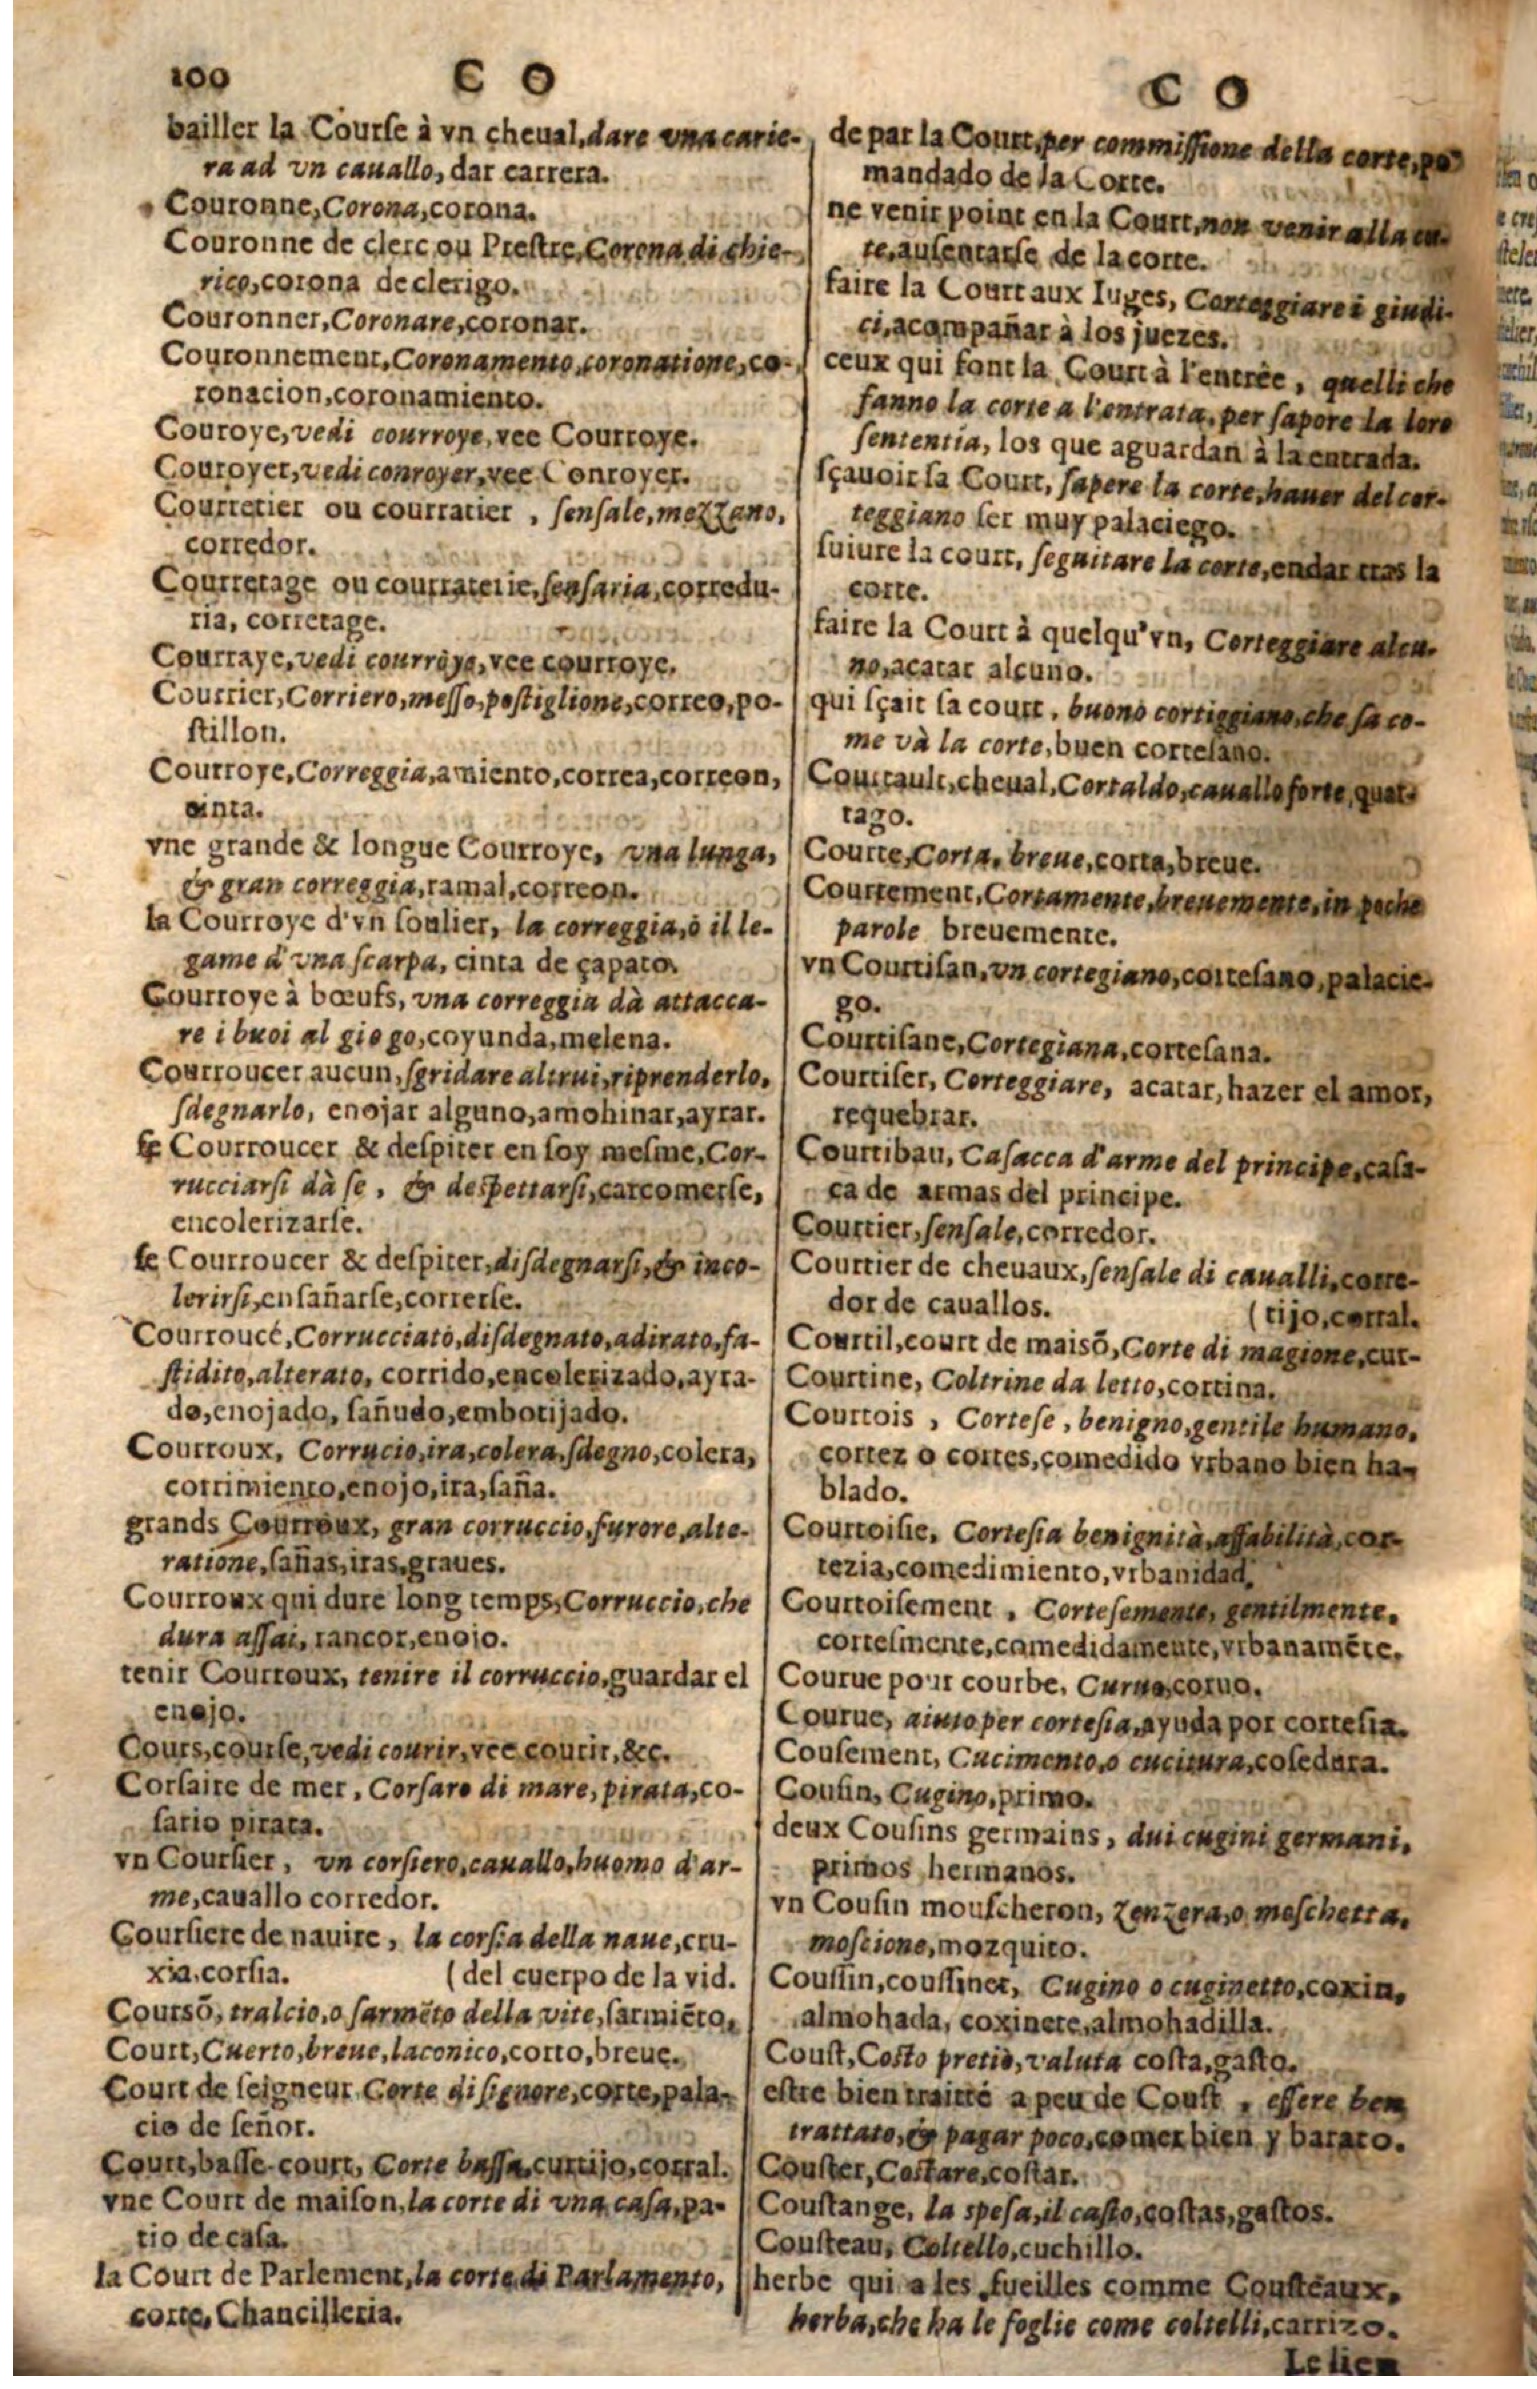 100 C O
bailler la Courſe à vn cheual, dare vna carie-
ra ad vn cauallo, dar carrera.
Couronne, Corona, corona.
Couronne de clerc ou Preſtre, Corona di chie-
rico, corona de clerigo.
Couronner, Coronare, coronar.
Couronnement, Coronamento, coronatione, co-
ronacion, coronamiento.
Couroye, vedi courroye, vee Courroye.
Couroyer, vedi conroyer, vee Conroyer.
Courretier ou courratier, ſenſale, mezzano,
corredor.
Courretage ou courraterie, ſenſaria, corredu-
ria, corretage.
Courraye, vedi courròye, vee courroye.
Courrier, Corriero, meſſo, poſtiglione, correo, po-
ſtillon.
Courroye, Correggia, amiento, correa, correon,
cinta.
vne grande & longue Courroye, vna lunga,
& gran correggia, ramal, correon.
la Courroye d'vn ſoulier, la correggia, ò il le-
game d'vna ſcarpa, cinta de çapato.
Courroye à bœufs, vna correggia dà attacca-
re i buoi al giogo, coyunda, melena.
Courroucer aucun, ſgridare altrui, riprenderlo,
ſdegnarlo, enojar alguno, amohinar, ayrar.
ſe Courroucer & deſpiter en ſoy meſme, Cor-
rucciarſi dà ſe, & deſpettarſi, carcomerſe,
encolerizarſe.
ſe Courroucer & deſpiter, diſdegnarſi, & inco-
lerirſi, enſañarſe, correrſe.
Courroucé, Corrucciato, diſdegnato, adirato, fa-
ſtidito, alterato, corrido, encolerizado, ayra-
do, enojado, ſañudo, embotijado.
Courroux, Corrucio, ira, colera, ſdegno, colera,
corrimiento, enojo, ira, ſaña.
grands Courroux, gran corruccio, furore, alte-
ratione, ſañas, iras, graues.
Courroux qui dure long temps, Corruccio, che
dura aſſai, rancor, enojo.
tenir Courroux, tenire il corruccio, guardar el
enojo.
Cours, courſe, vedi courir, vee courir, &c.
Corſaire de mer, Corſaro di mare, pirata, co-
ſario pirata.
vn Courſier, vn corſiero, cauallo, huomo d'ar-
me, cauallo corredor.
Courſiere de nauire, la corſia della naue, cru-
xia, corſia. (del cuerpo de la vid.
Courſõ, tralcio, o ſarmẽto della vite, ſarmiẽto,
Court, Cuerto, breue, laconico, corto, breue.
Court de ſeigneur Corte di ſignore, corte, pala-
cio de ſeñor.
Court, baſſe-court, Corte baſſa, curtijo, corral.
vne Court de maiſon, la corte di vna caſa, pa-
tio de caſa.
la Court de Parlement, la corte di Parlamento,
corte, Chancilleria.
C O
de par la Court, per commiſſione della corte, por
mandado de la Corte.
ne venir point en la Court, non venir alla cor-
te, auſentarſe de la corte.
faire la Court aux Iuges, Corteggiare i giudi-
ci, acompañar à los juezes.
ceux qui font la Court à l'entrée, quelli che
fanno la corte a l'entrata, per ſapore la loro
ſententia, los que aguardan à la entrada.
ſçauoir ſa Court, ſapere la corte, hauer del cor-
teggiano ſer muy palaciego.
ſuiure la court, ſeguitare la corte, endar tras la
corte.
faire la Court à quelqu'vn, Corteggiare alcu-
no, acatar alcuno.
qui ſçait ſa court, buono cortiggiano, che ſa co-
me và la corte, buen corteſano.
Courtault, cheual, Cortaldo, cauallo forte, quar-
tago.
Courte, Corta, breue, corta, breue.
Courtement, Cortamente, breuemente, in poche
parole breuemente.
vn Courtiſan, vn cortegiano, corteſano, palacie-
go.
Courtiſane, Cortegiàna, corteſana.
Courtiſer, Corteggiare, acatar, hazer el amor,
requebrar.
Courtibau, Caſacca d'arme del principe, caſa-
ca de armas del principe.
Courtier, ſenſale, corredor.
Courtier de cheuaux, ſenſale di caualli, corre-
dor de cauallos. (tijo, corral.
Courtil, court de maiſõ, Corte di magione, cur-
Courtine, Coltrine da letto, cortina.
Courtois, Corteſe, benigno, gentile humano,
cortez o cortes, comedido vrbano bien ha-
blado.
Courtoiſie, Corteſia benignità, affabilità, cor-
tezia, comedimiento, vrbanidad.
Courtoiſement, Corteſemente, gentilmente,
corteſmente, comedidamente, vrbanamẽte.
Courue pour courbe, Curua, coruo.
Courue, aiuto per corteſia, ayuda por corteſia.
Couſement, Cucimento, o cucitura, coſedura.
Couſin, Cugino, primo.
deux Couſins germains, dui cugini germani,
primos hermanos.
vn Couſin mouſcheron, Zenzera, o moſchetta,
moſcione, mozquito.
Couſſin, couſſinet, Cugino o cuginetto, coxin,
almohada, coxinete, almohadilla.
Couſt, Coſto pretio, valuta coſta, gaſto.
eſtre bien traitté a peu de Couſt, eſſere ben
trattato, & pagar poco, comer bien y barato.
Couſter, Coſtare, coſtar.
Couſtange, la ſpeſa, il caſto, coſtas, gaſtos.
Couſteau, Coltello, cuchillo.
herbe qui a les fueilles comme Couſteaux,
herba, che ha le foglie come coltelli, carrizo.
Le lieu